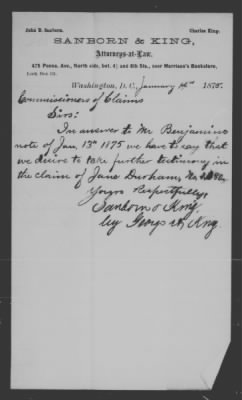 John D. Sanborn. Charles King.
SANBORN & KING,
Attorneys-at-Law,
475 Penna. Ave., North side, bet. 4½ and 6th Sts., near Morrison's Bookstore,
Lock Box
Washington, D. C., January 14th 1875.
Commissioners of Claims
Sirs:
In answer to Mr Benjamins
note of Jan. 13th 1875 we have to say that
we desire to take further testimony in
the claim of Jane Durham, No
Yours Respectfully,
Sanborn & King
by King.